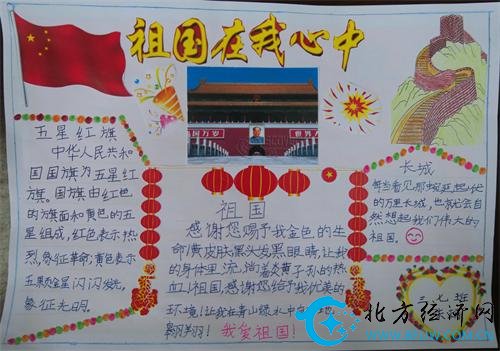 祖国在我心中
五星红旗
中华人民共和
国国旗为五星红
旗。国旗由红色
的旗面和黄色的五
星组成,红色表示热
烈,象征革命;黄色表示
五颗金星闪闪发光,
象征光明。
国万岁
世界人
祖国
感谢您赐予我金色的生
命!黄皮肤,黑头发,黑眼睛,让我
的身体里流淌着炎黄子孙的热
血!祖国,感谢您给予我优美的
环境!让我在青山绿水中
翱翔!我爱祖国!
长城
每当看见那蜿蜒起伏
的万里长城,也就会自
然想起我们伟大的
祖国。
三、七班
北方经济网